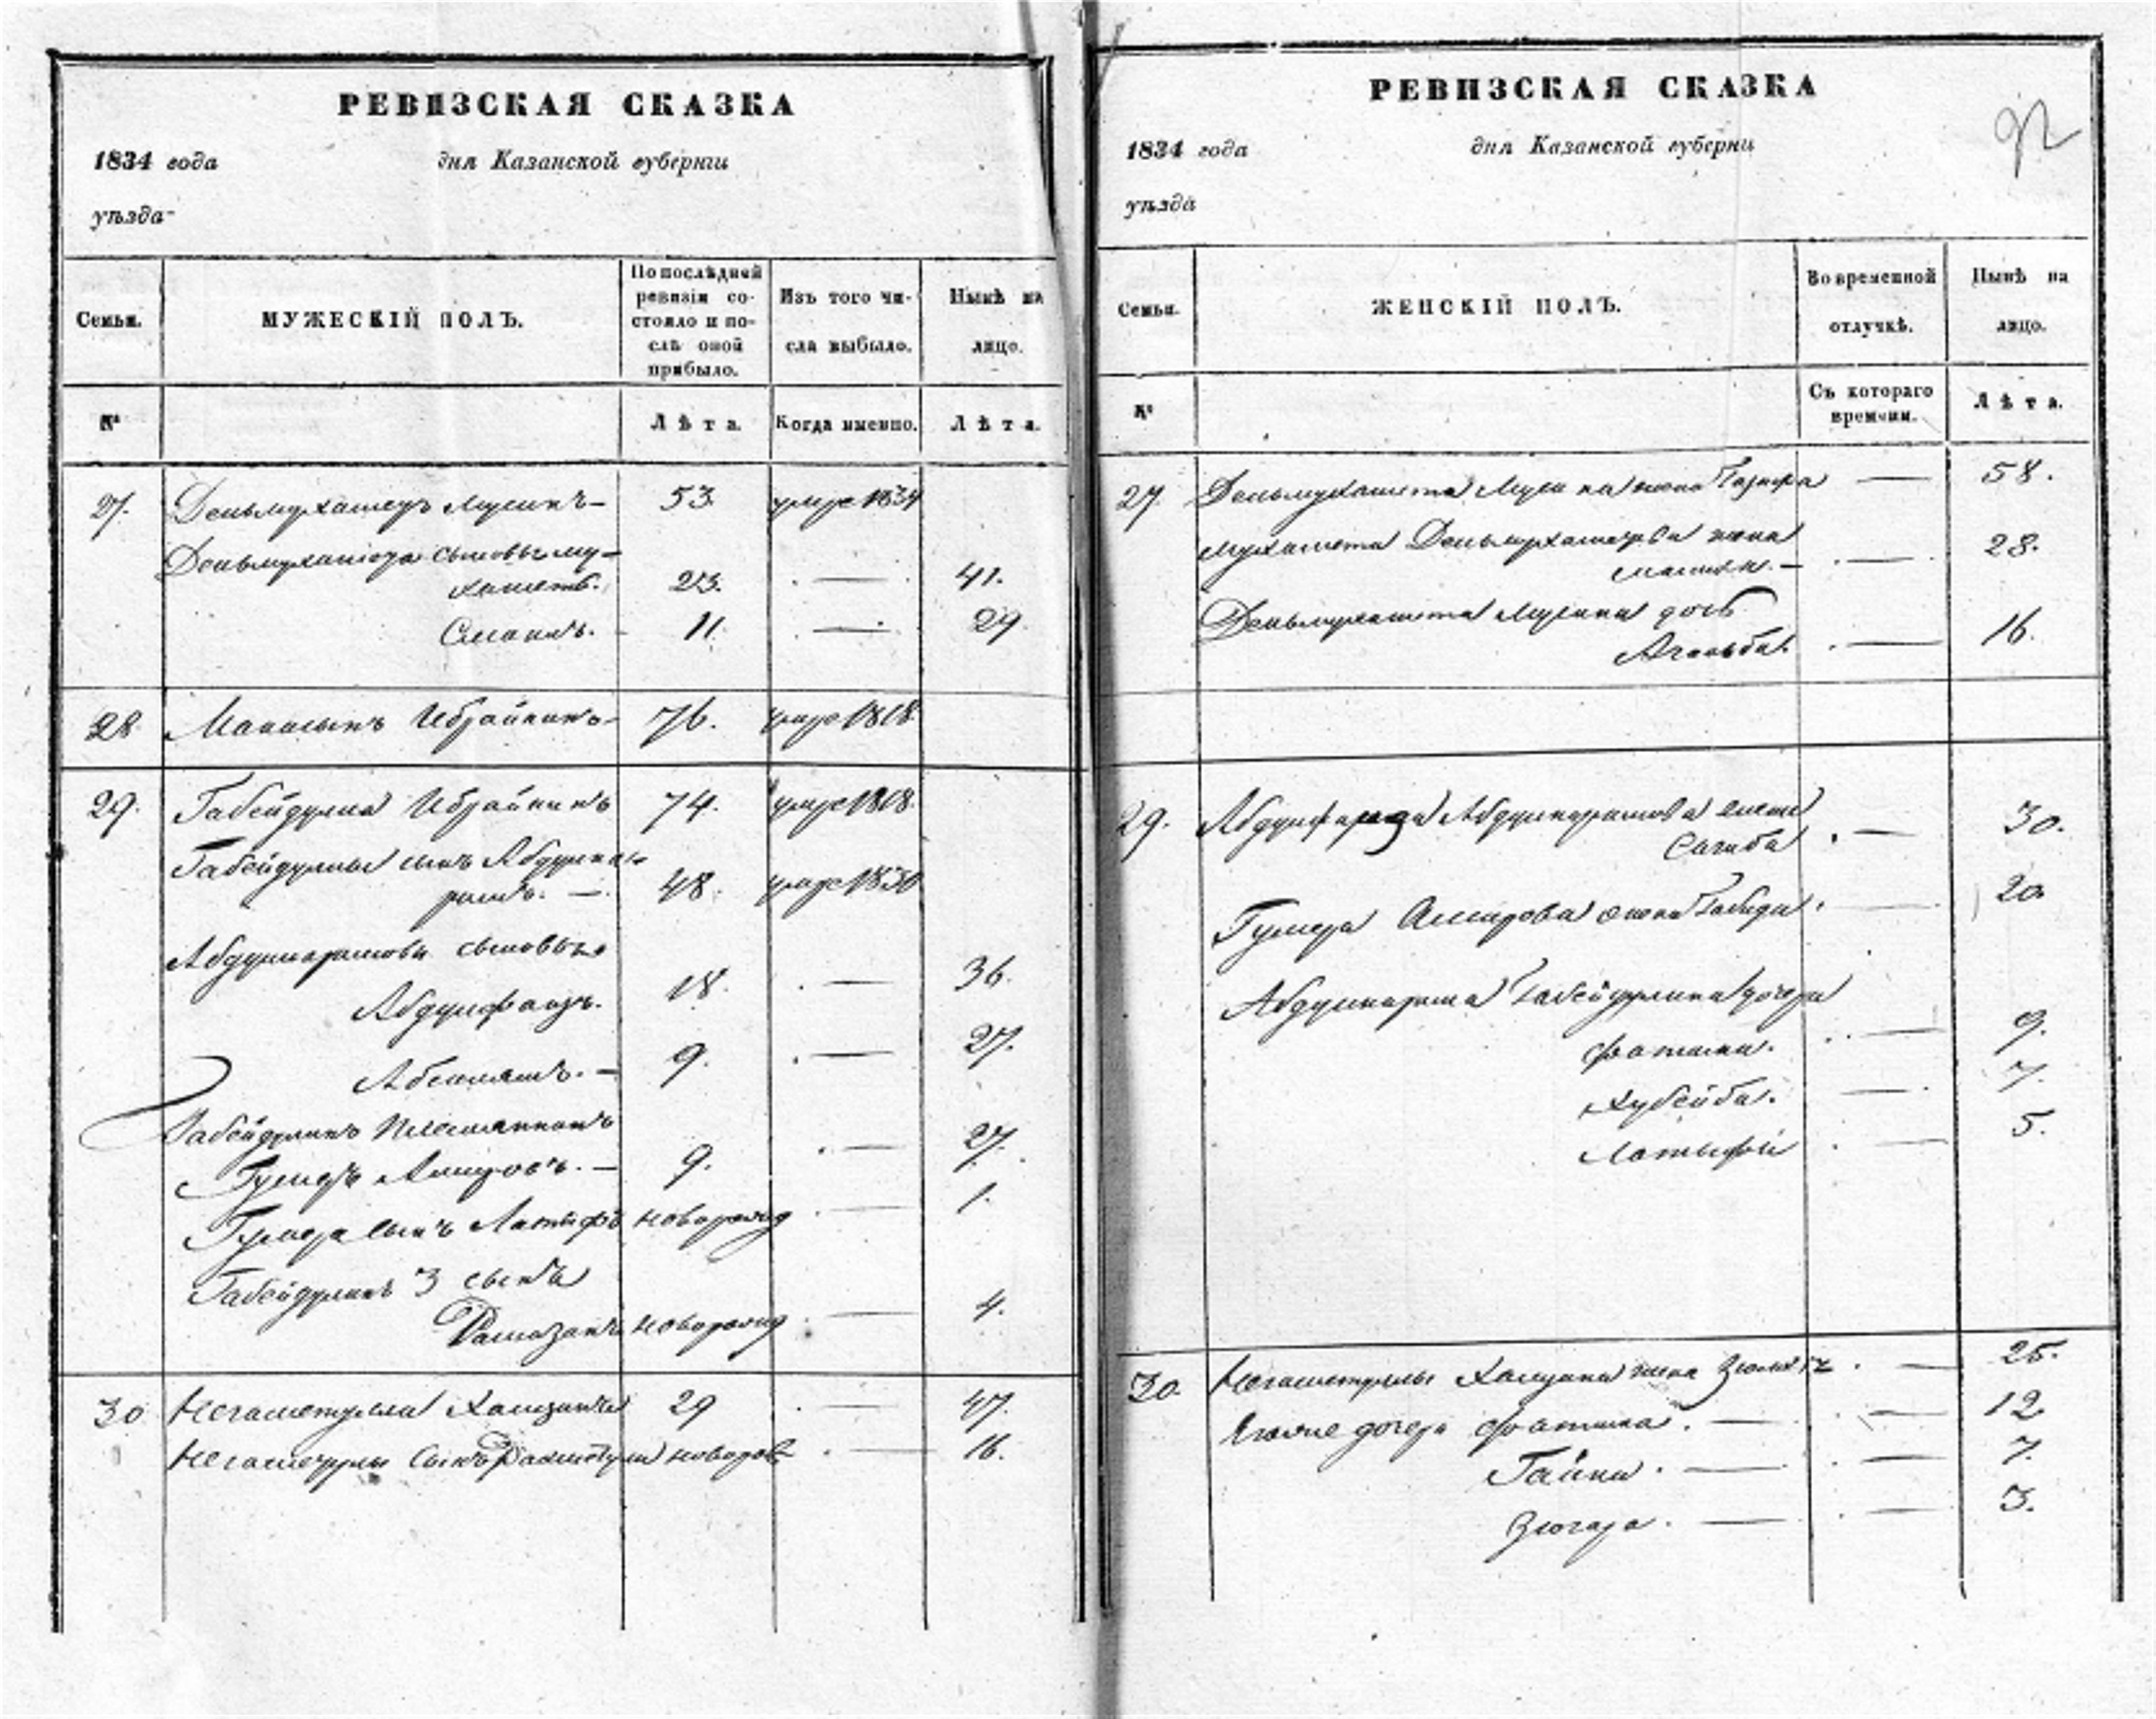 РЕВИЗСКАЯ СКАЗКА
1834 года дня Казанской губернiи
уѣзда
Семьи.
МУЖЕСКIЙ ПОЛЪ.
По послѣдней
ревизiи со-
стояло и по-
слѣ оной
прибыло.
Изъ того чи-
сла выбыло.
Нынѣ на
лицо.
№
Лѣта.
Когда именно.
Лѣта.
27. Деньмухаметъ Мусинъ 53. умре 1834
Деньмухамета сыновья Му-
хаметъ. 23. — 41.
11. — 29.
28. Ибрайкинъ 76. умре 1818
29. Габейдулла Ибрайкинъ 74. умре 1808.
Габейдуллы сынъ Абдулка-
римъ. — 48. умре 1830
Абдулкаримовы сыновья
Абдулфаизъ. 18. — 36.
Абсалямъ. — 9. — 27.
Габейдуллинъ племянникъ
Гумеръ Амировъ. — 9. — 27.
Гумера сынъ Латифъ новорожд — 1.
Габейдуллинъ 3 сынъ
Рамазанъ новорожд — 4.
30 Негаметулла Хамзинъ 29 — 47.
Негаметуллы сынъ Рахметулла новорож — 16.
РЕВИЗСКАЯ СКАЗКА
1834 года дня Казанской губернi
уѣзда
Семьи.
ЖЕНСКIЙ ПОЛЪ.
Во временной
отлучкѣ.
Нынѣ на
лицо.
№
Съ котораго
времени.
Лѣта.
27. Деньмухамета Мусина жена — 58.
Мухамета Деньмухаметова жена
— 28.
Деньмухамета Мусина дочь
— 16.
29. Абдулфаиза Абдулкаримова жена
Сагиба — 30.
Гумера Амирова жена Габида. — 20.
Абдулкарима Габейдуллина дочери
Фатима. — 9.
Хубейба. — 7.
Латыфа — 5.
30. Негаметуллы Хамзина жена — 25.
дочери Фатима. — 12.
Гайни. — 7.
Зюгара. — 3.